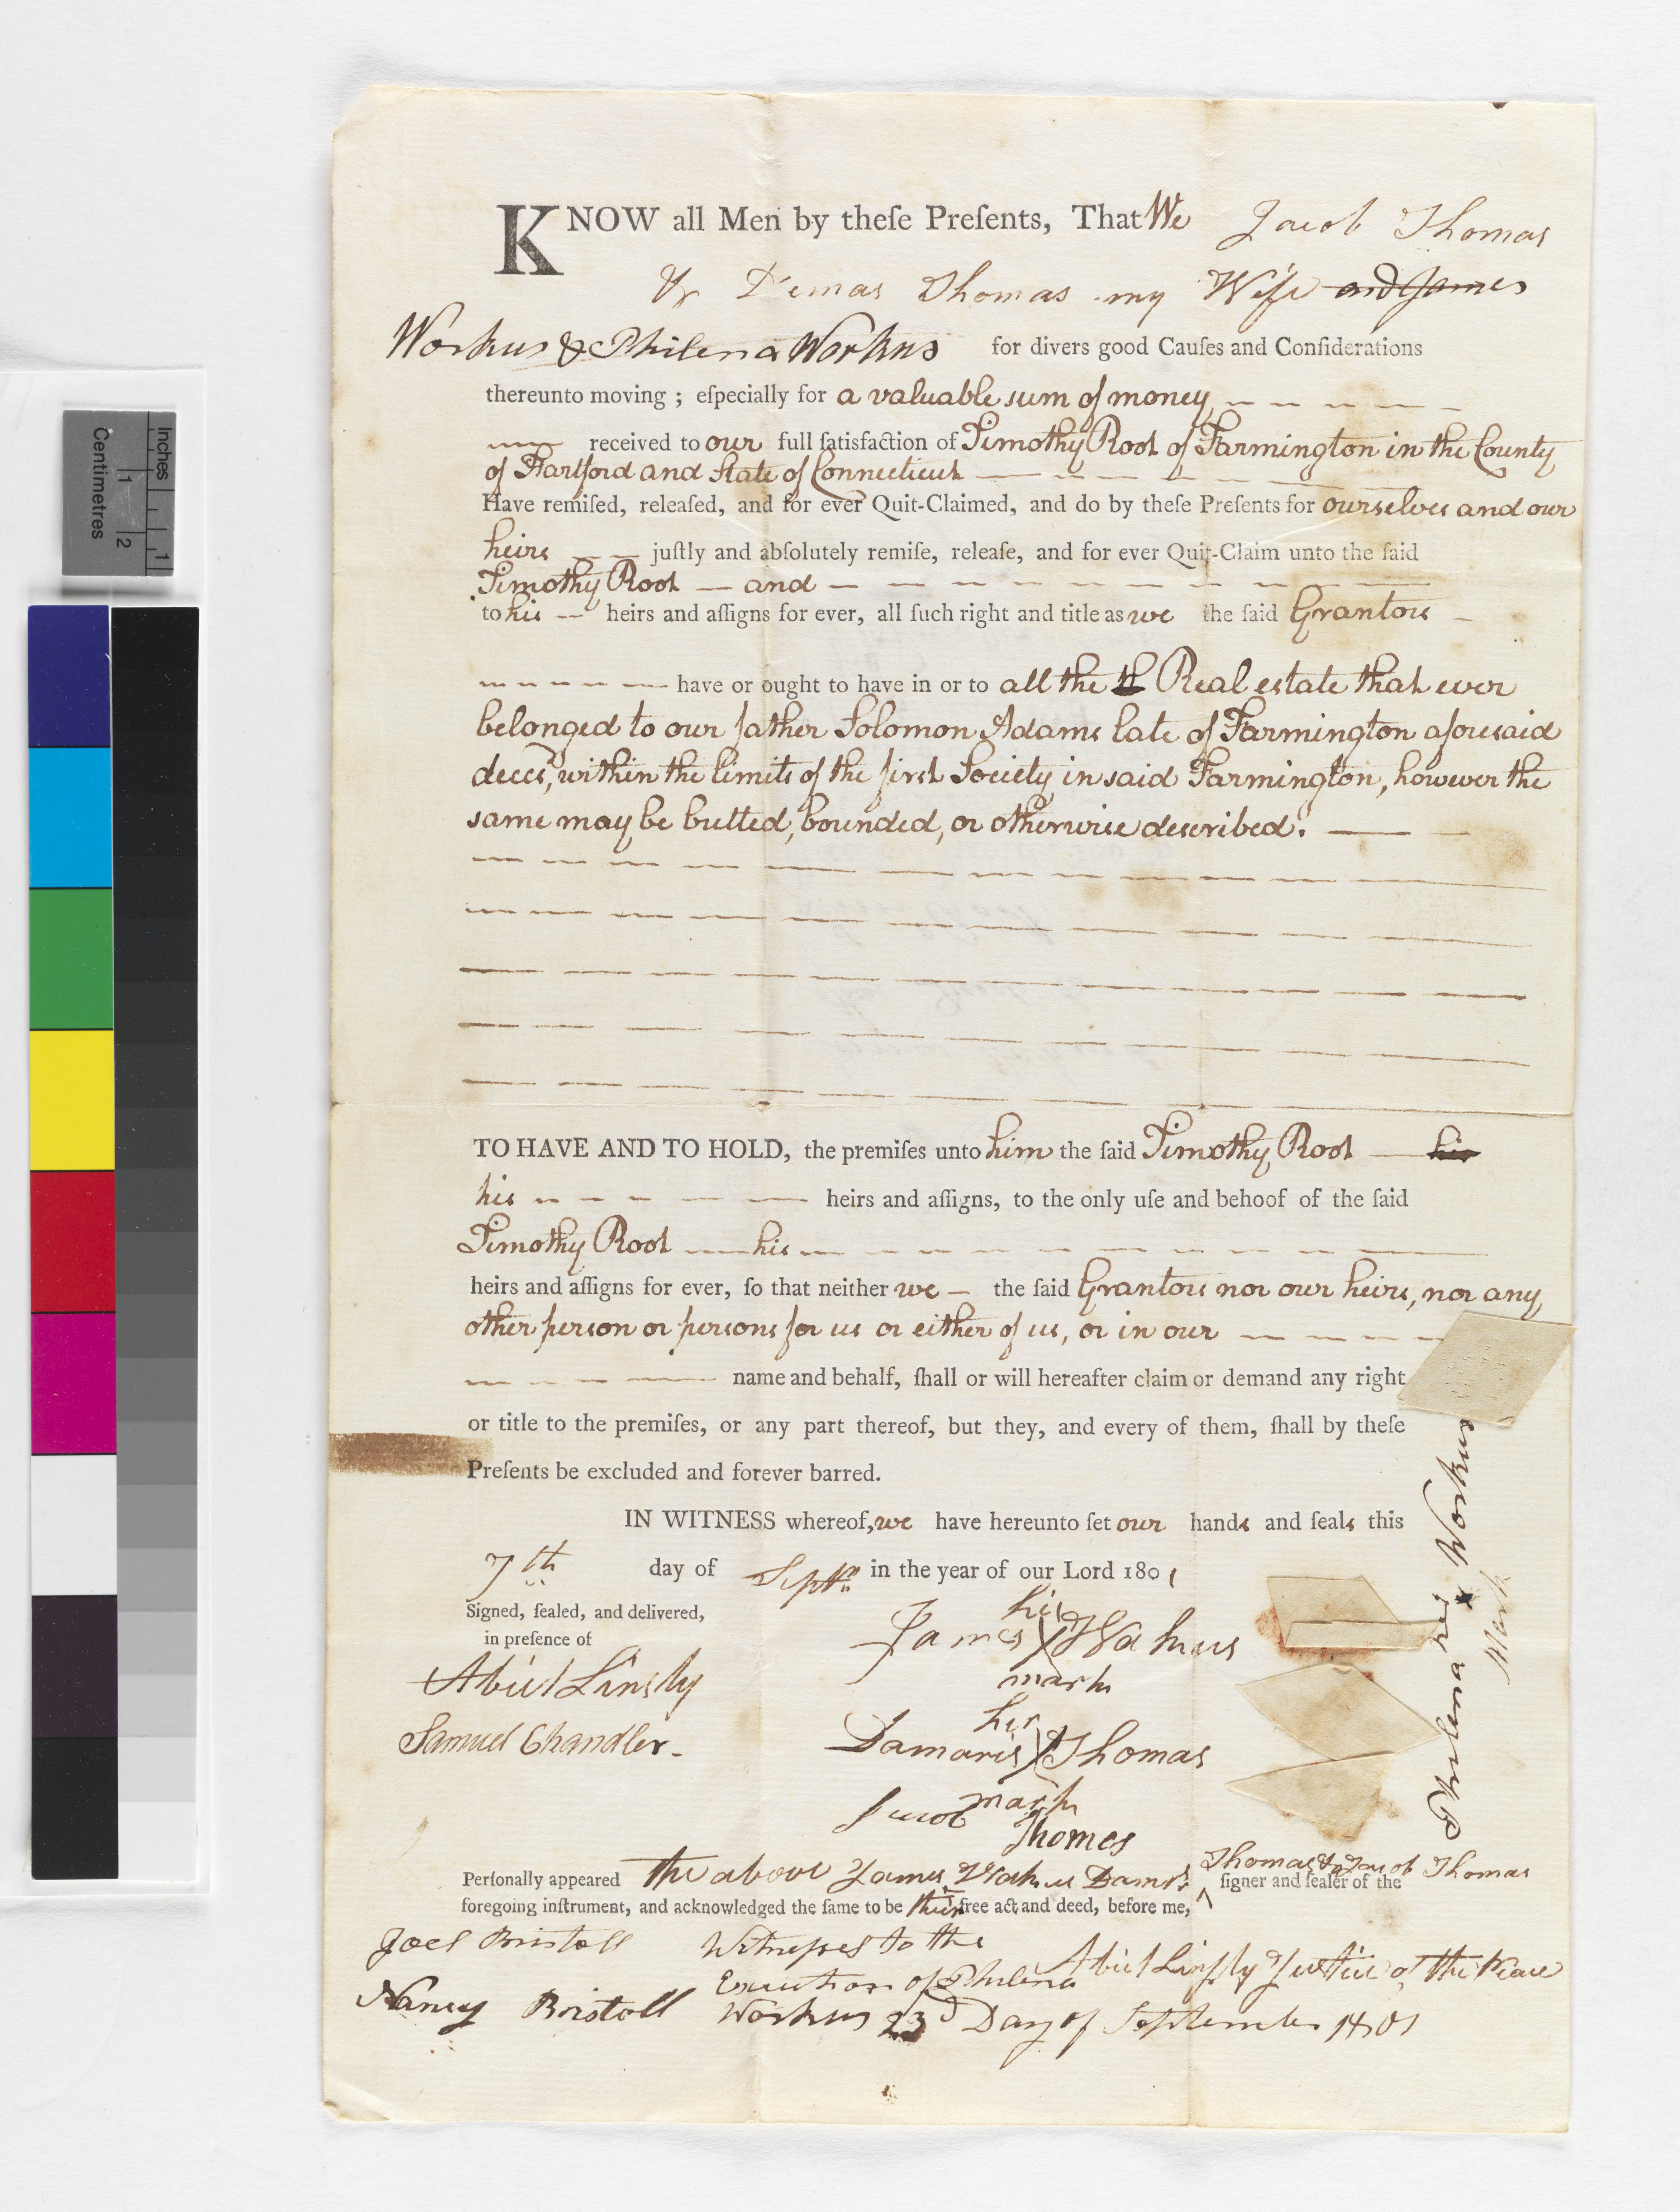 KNOW all Men by theſe Preſents, That We Jacob Thomas
& Demas Thomas my Wife and James
Workus & Philena Workus for divers good Cauſes and Conſiderations
thereunto moving ; eſpecially for a valuable sum of money
received to our full ſatisfaction of Timothy Root of Farmington in the County
of Hartford and State of Connecticut
Have remiſed, releaſed, and for ever Quit-Claimed, and do by theſe Preſents for ourselves and our
heirs juſtly and abſolutely remiſe, releaſe, and for ever Quit-Claim unto the ſaid
Timothy Root — and
to his heirs and aſſigns for ever, all ſuch right and title as we the ſaid Grantors
have or ought to have in or to all the Real estate that ever
belonged to our father Solomon Adams late of Farmington aforesaid
decesd, within the limits of the first Society in said Farmington, however the
same may be butted, bounded, or otherwise described.
TO HAVE AND TO HOLD, the premiſes unto him the ſaid Timothy Root his
his heirs and aſſigns, to the only uſe and behoof of the ſaid
Timothy Root his
heirs and aſſigns for ever, ſo that neither we the ſaid Grantors nor our heirs, nor any
other person or persons for us or either of us, or in our
name and behalf, ſhall or will hereafter claim or demand any right
or title to the premiſes, or any part thereof, but they, and every of them, ſhall by theſe
Preſents be excluded and forever barred.
IN WITNESS whereof, we have hereunto ſet our hands and ſeals this
7th day of Septr in the year of our Lord 1801
Signed, ſealed, and delivered,
in preſence of
Abiel Linsly
Samuel Chandler.
his
James X Wakus
mark
her
Damaris X Thomas
mark
Jacob Thomes
Philena her x Workus
Mark
Perſonally appeared the above James Workus Damris Thomas & Jacob Thomas ſigner and ſealer of the
foregoing inſtrument, and acknowledged the ſame to be their free act and deed, before me,
Abiel Linsly Justice of the Peace
Joel Bristoll
Nancy Bristoll
Witnesses to the
Execution of Philena
Workus 23d Day of September 1801
Inches
Centimetres
1
2
1